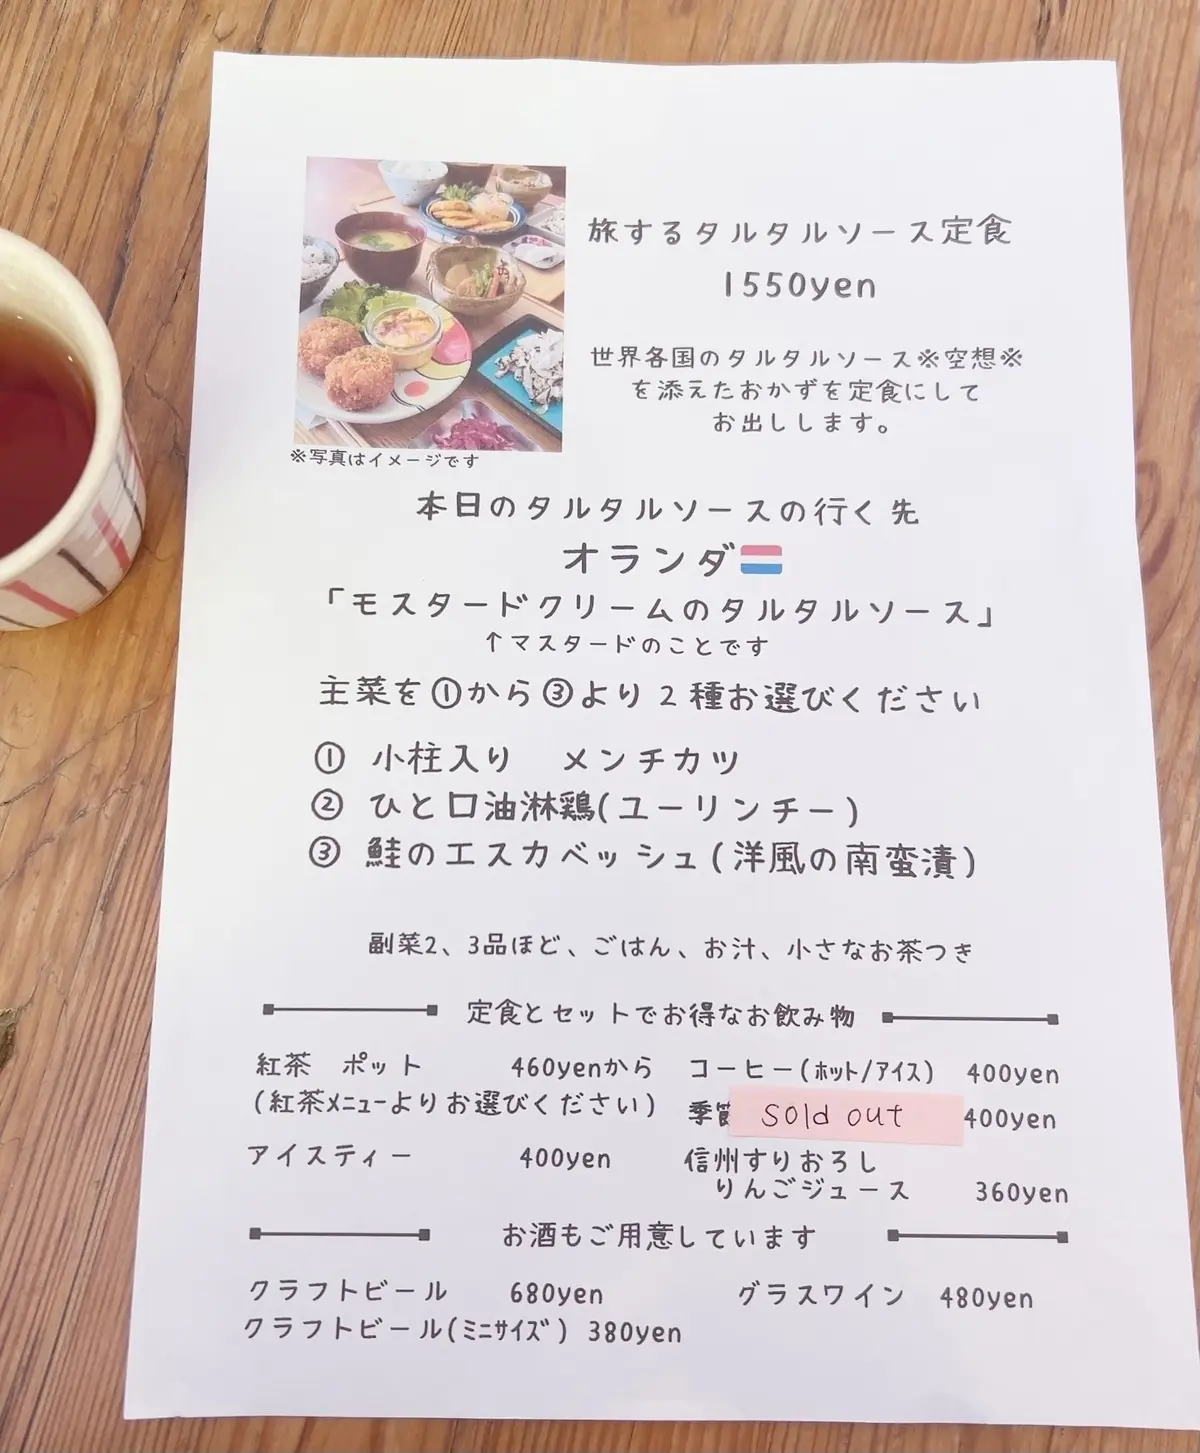 旅するタルタルソース定食
1550yen
世界各国のタルタルソース※空想※
を添えたおかずを定食にして
お出しします。
※写真はイメージです
本日のタルタルソースの行く先
オランダ🇳🇱
「モスタードクリームのタルタルソース」
↑マスタードのことです
主菜を①から③より2種お選びください
① 小柱入り メンチカツ
② ひと口油淋鶏(ユーリンチー)
③ 鮭のエスカベッシュ(洋風の南蛮漬)
副菜2、3品ほど、ごはん、お汁、小さなお茶つき
定食とセットでお得なお飲み物
紅茶 ポット 460yenから
(紅茶メニューよりお選びください)
アイスティー 400yen
コーヒー(ホット/アイス) 400yen
季節 sold out 400yen
信州すりおろし
りんごジュース 360yen
お酒もご用意しています
クラフトビール 680yen
クラフトビール(ミニサイズ) 380yen
グラスワイン 480yen